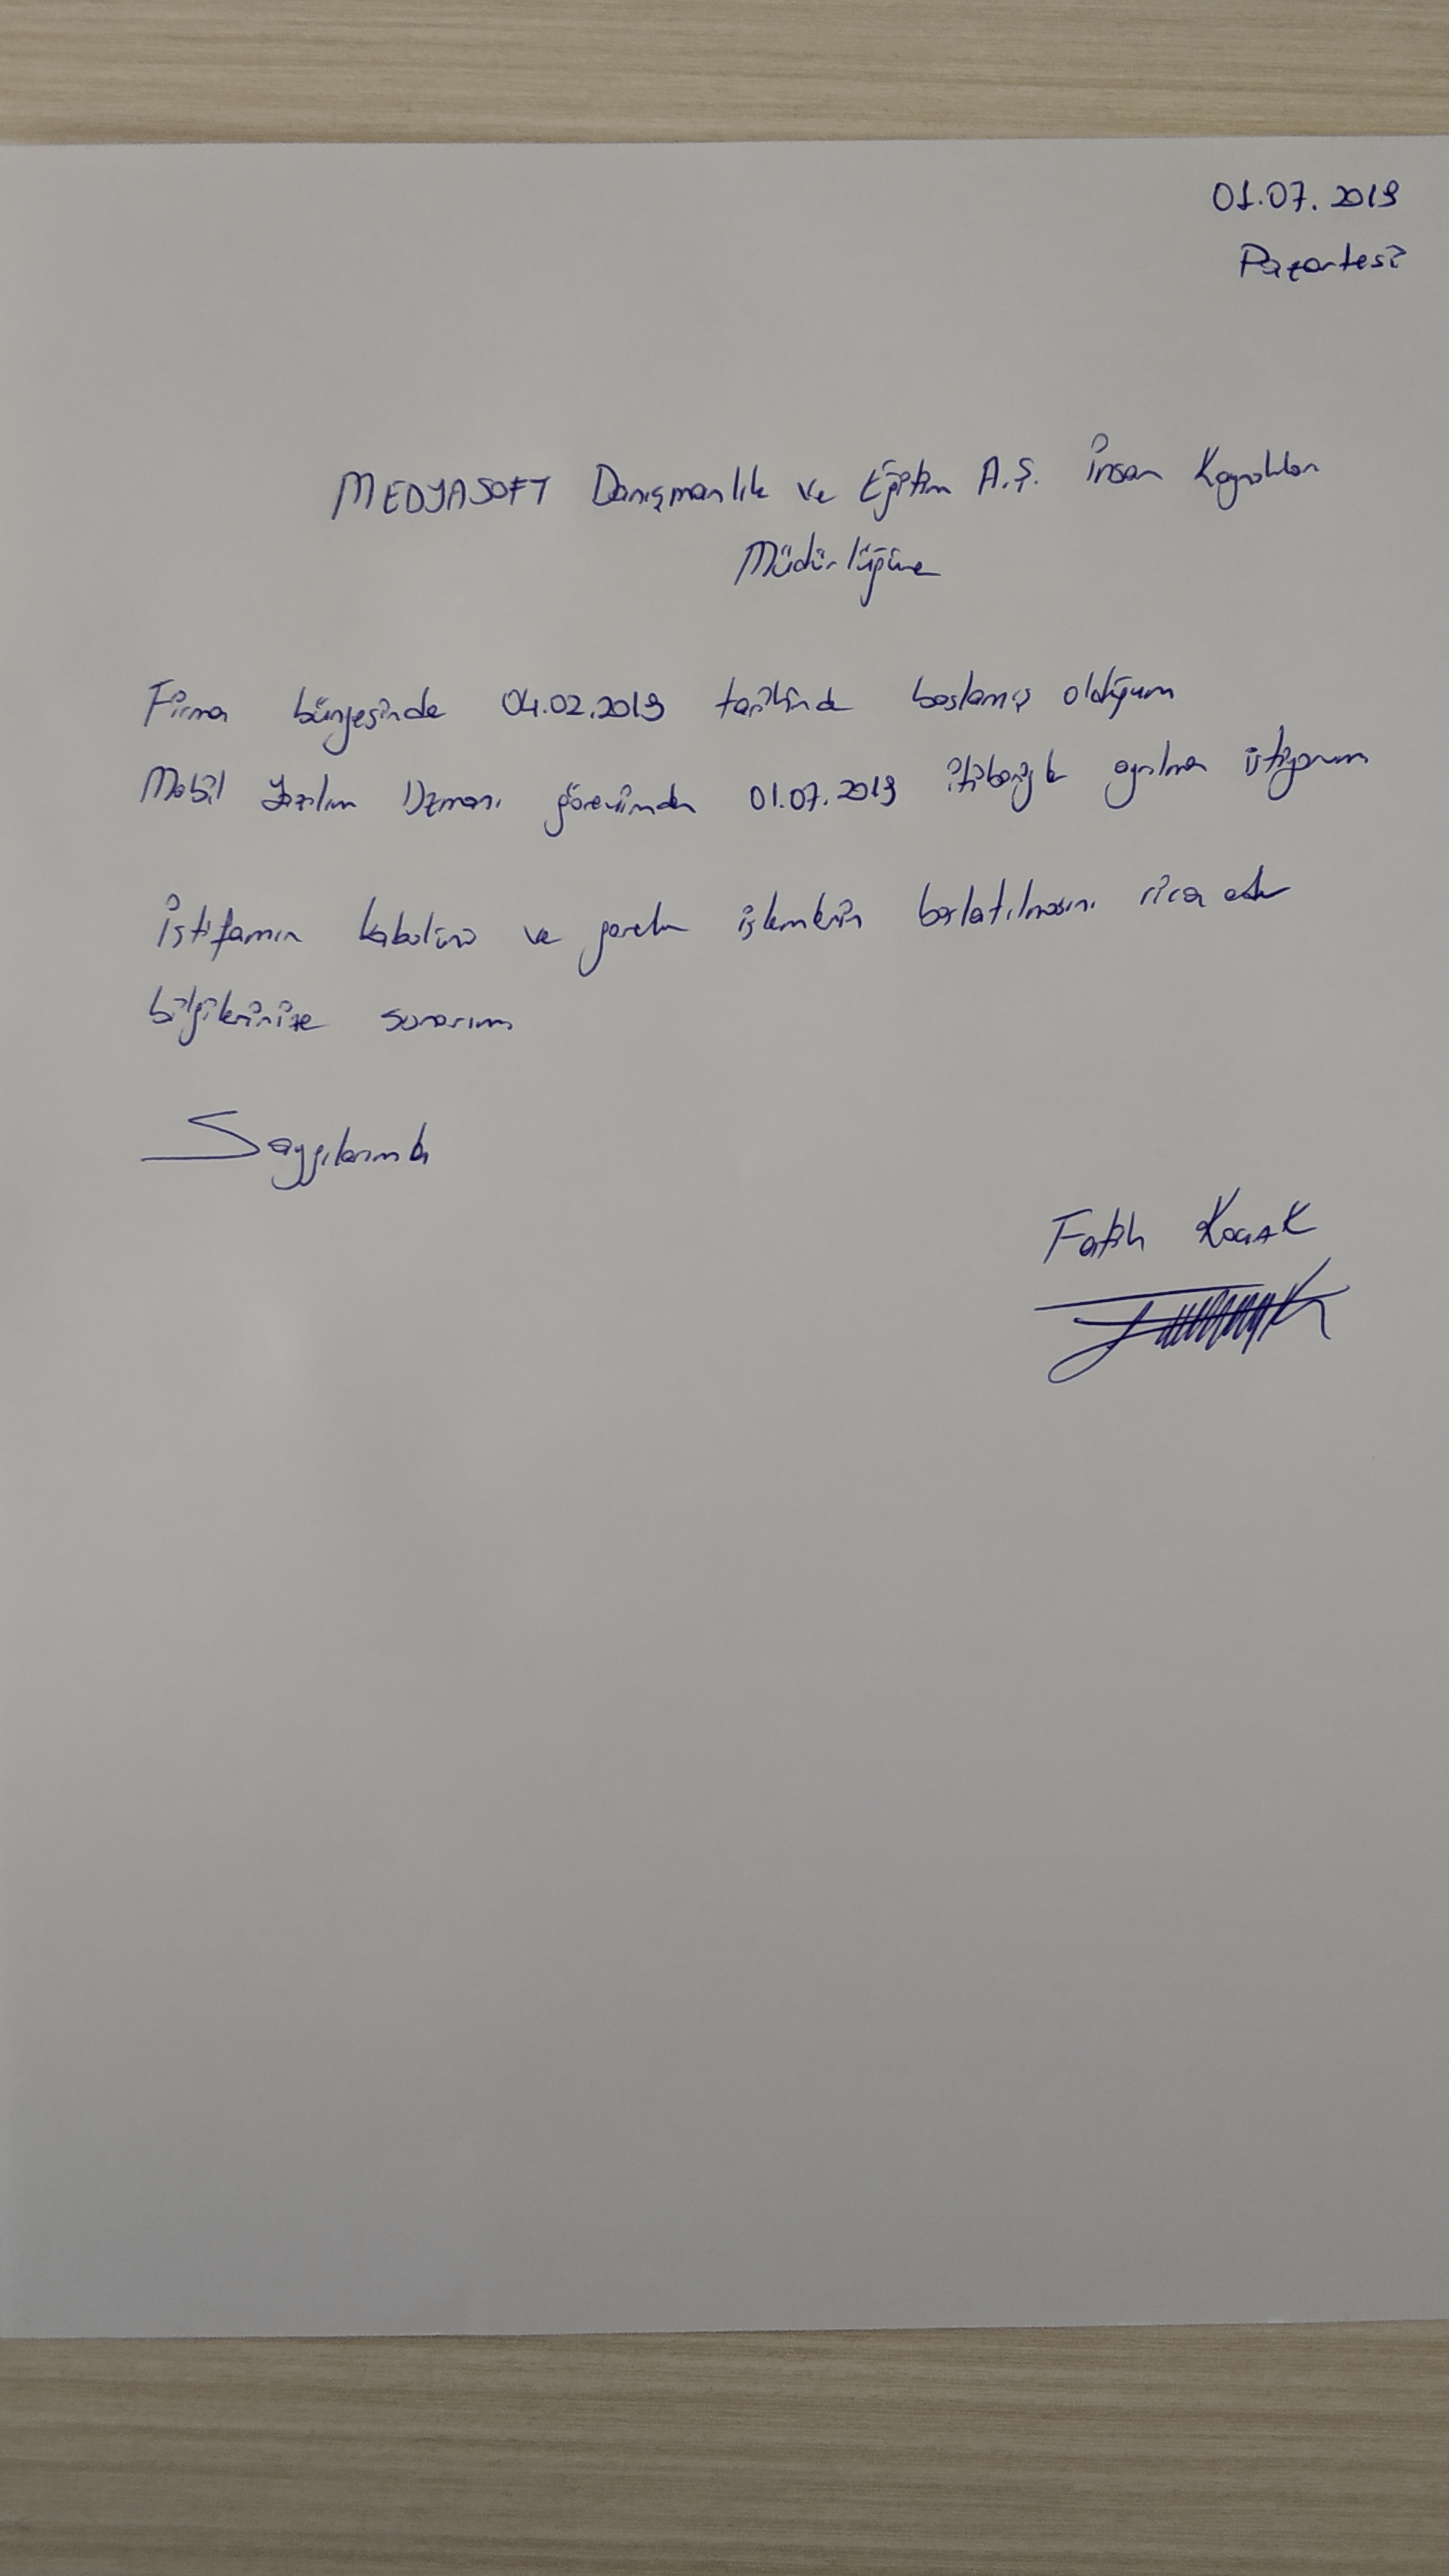 01.07.2019
Pazartesi
MEDYASOFT Danışmanlık ve Eğitim A.Ş. İnsan Kaynakları
Müdürlüğüne
Firma bünyesinde 04.02.2019 tarihinde başlamış olduğum
Mobil Yazılım Uzmanı görevimden 01.07.2019 itibariyle ayrılmak istiyorum
İstifamın kabulünü ve gerekli işlemlerin başlatılmasını rica eder
bilgilerinize sunarım
Saygılarımla
Fatih Koçak